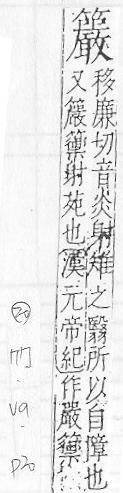 移廉切音炎射雉之翳所以自障也
又籞射苑也漢元帝紀作嚴籞
竹.V9.P20